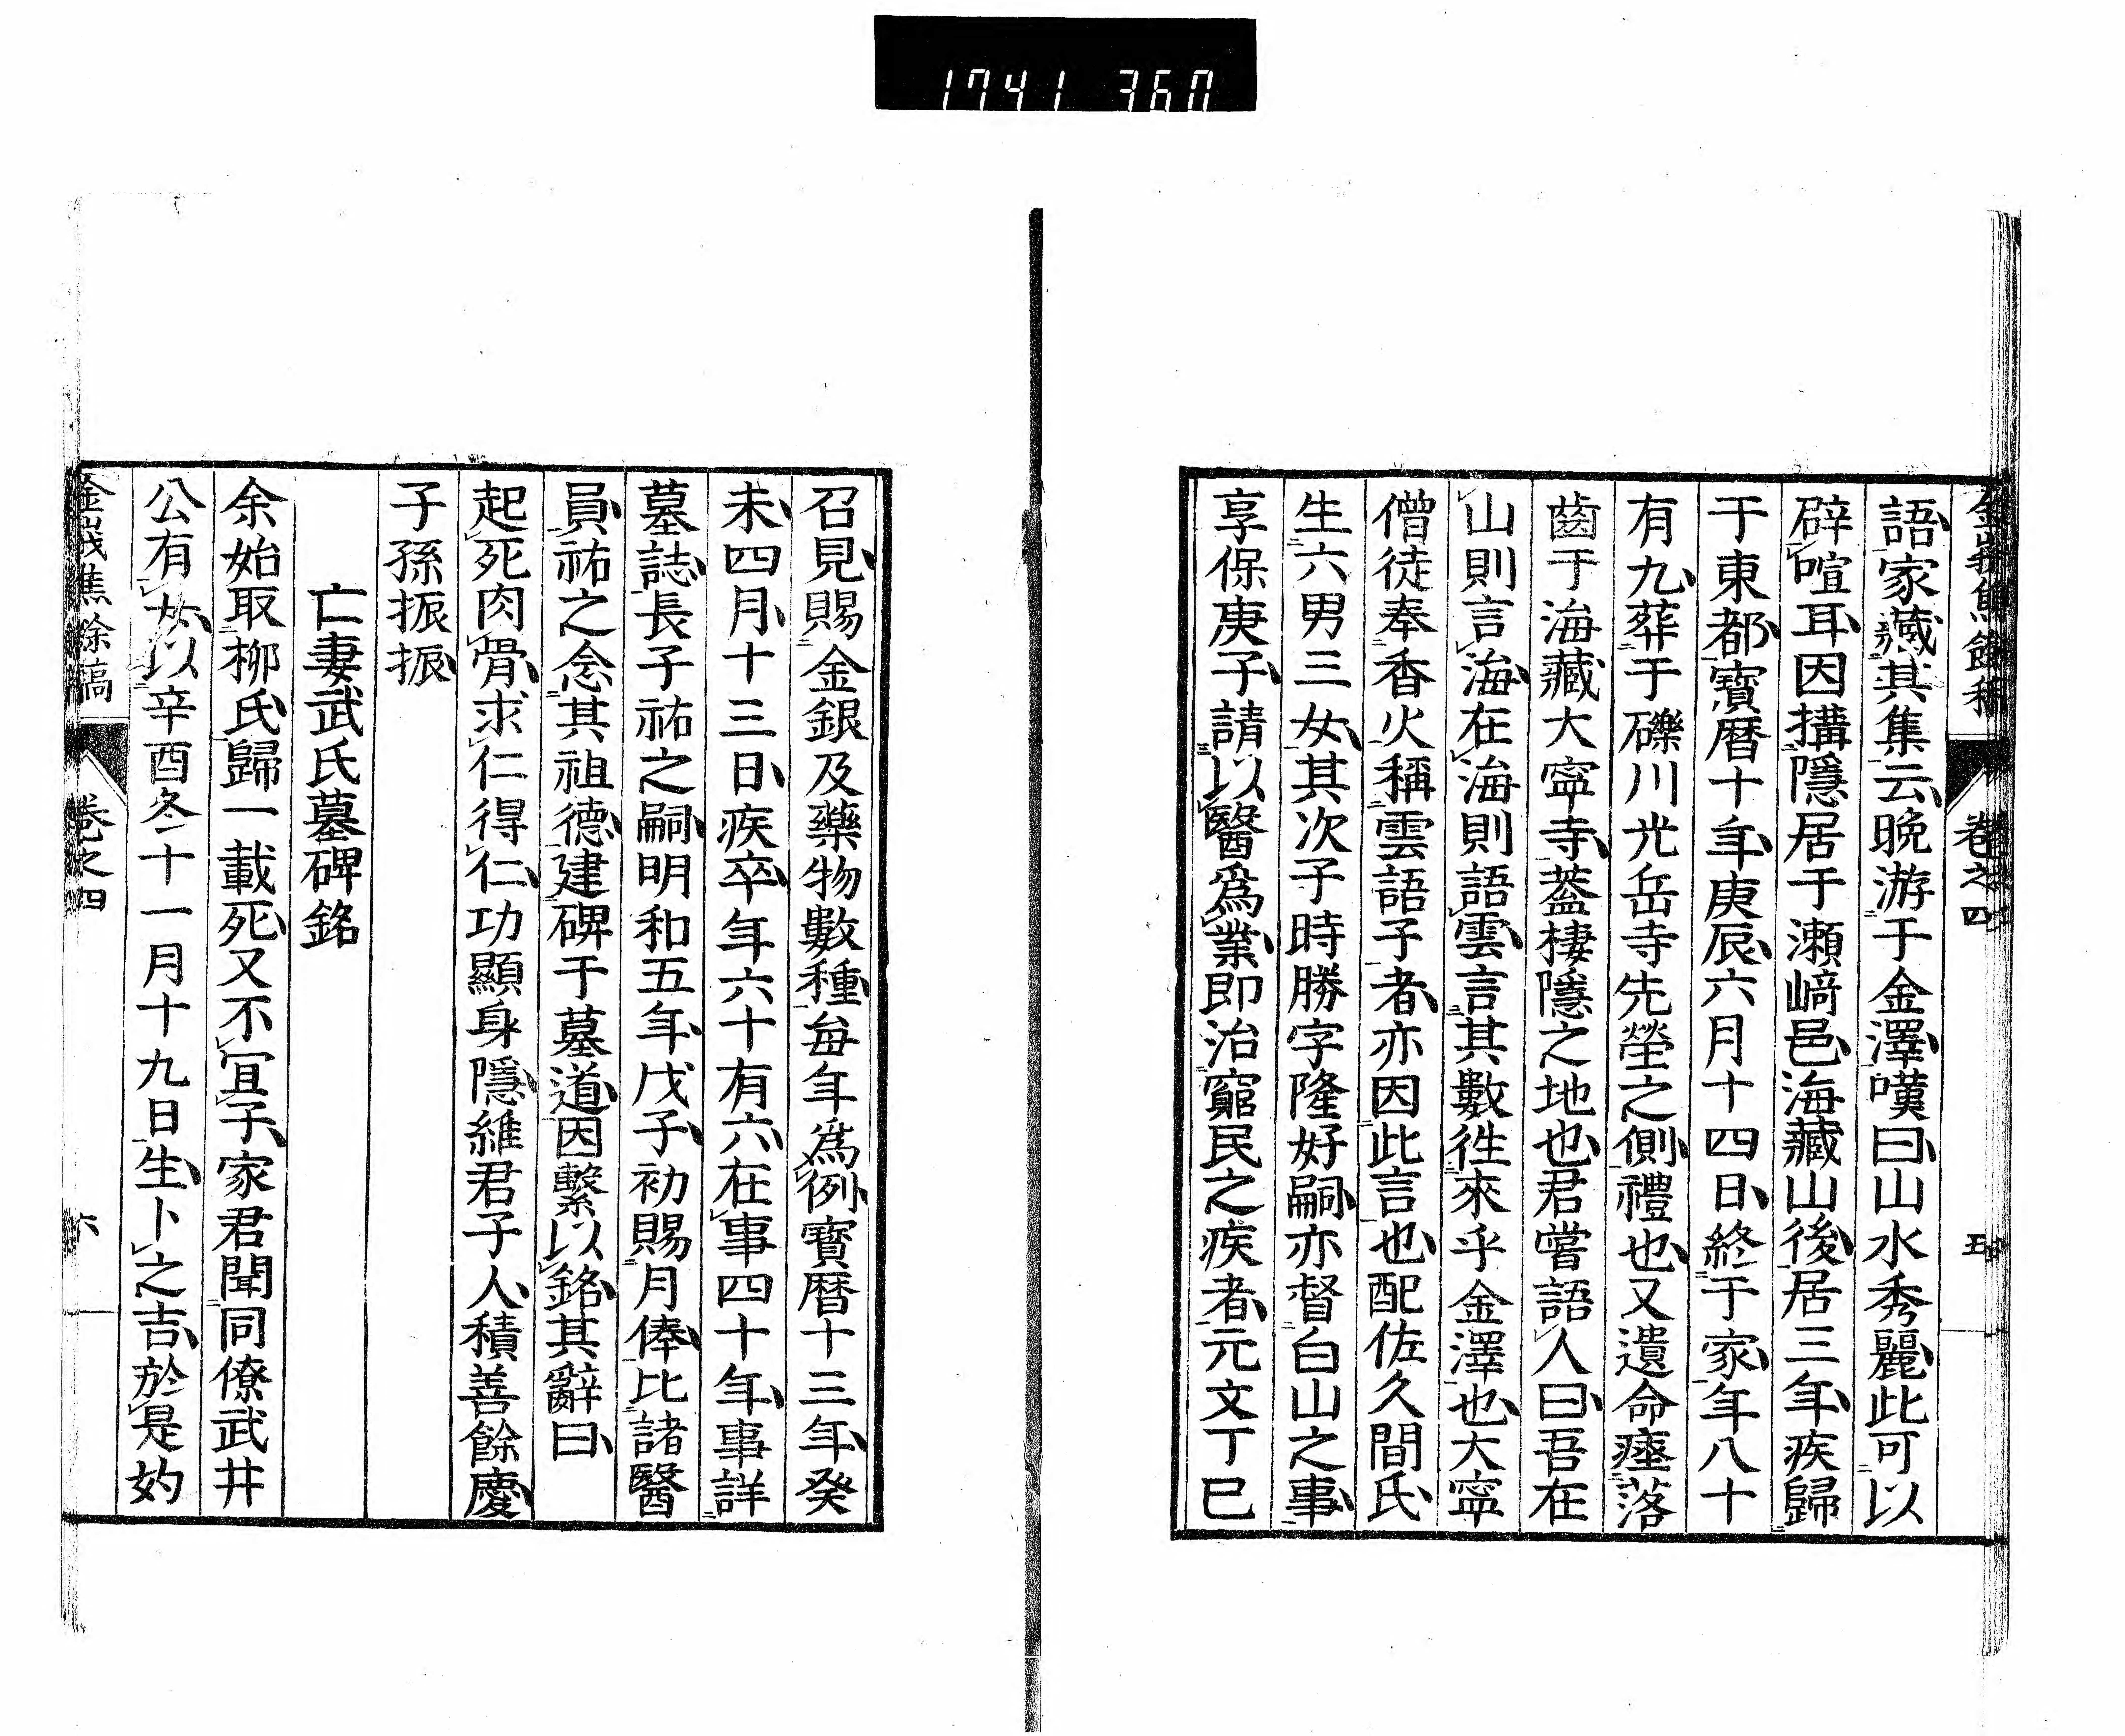 1741 360
金峩焦餘稿 卷之四 五
語家藏其集云晩游于金澤嘆曰山水秀麗此可以
辟喧耳因搆隱居于瀬﨑邑海藏山後居三年疾歸
于東都寶曆十年庚辰六月十四日終于家年八十
有九葬于礫川光岳寺先塋之側禮也又遺命瘞落
齒于海藏大寧寺蓋棲隱之地也君嘗語人曰吾在
山則言海在海則語雲言其數徃來乎金澤也大寧
僧徒奉香火稱雲語子者亦因此言也配佐久間氏
生六男三女其次子時勝字隆好嗣亦督白山之事
享保庚子請以醫爲業即治窮民之疾者元文丁巳
召見賜金銀及藥物數種每年爲例寶曆十三年癸
未四月十三日疾卒年六十有六在事四十年事詳
墓誌長子祐之嗣明和五年戊子初賜月俸比諸醫
員祐之念其祖德建碑于墓道因繫以銘其辭曰
起死肉骨求仁得仁功顯身隱維君子人積善餘慶
子孫振振
亡妻武氏墓碑銘
余始取柳氏歸一載死又不冝子家君聞同僚武井
公有女以辛酉冬十一月十九日生卜之吉於是妁
金峩焦餘稿 卷之四 六